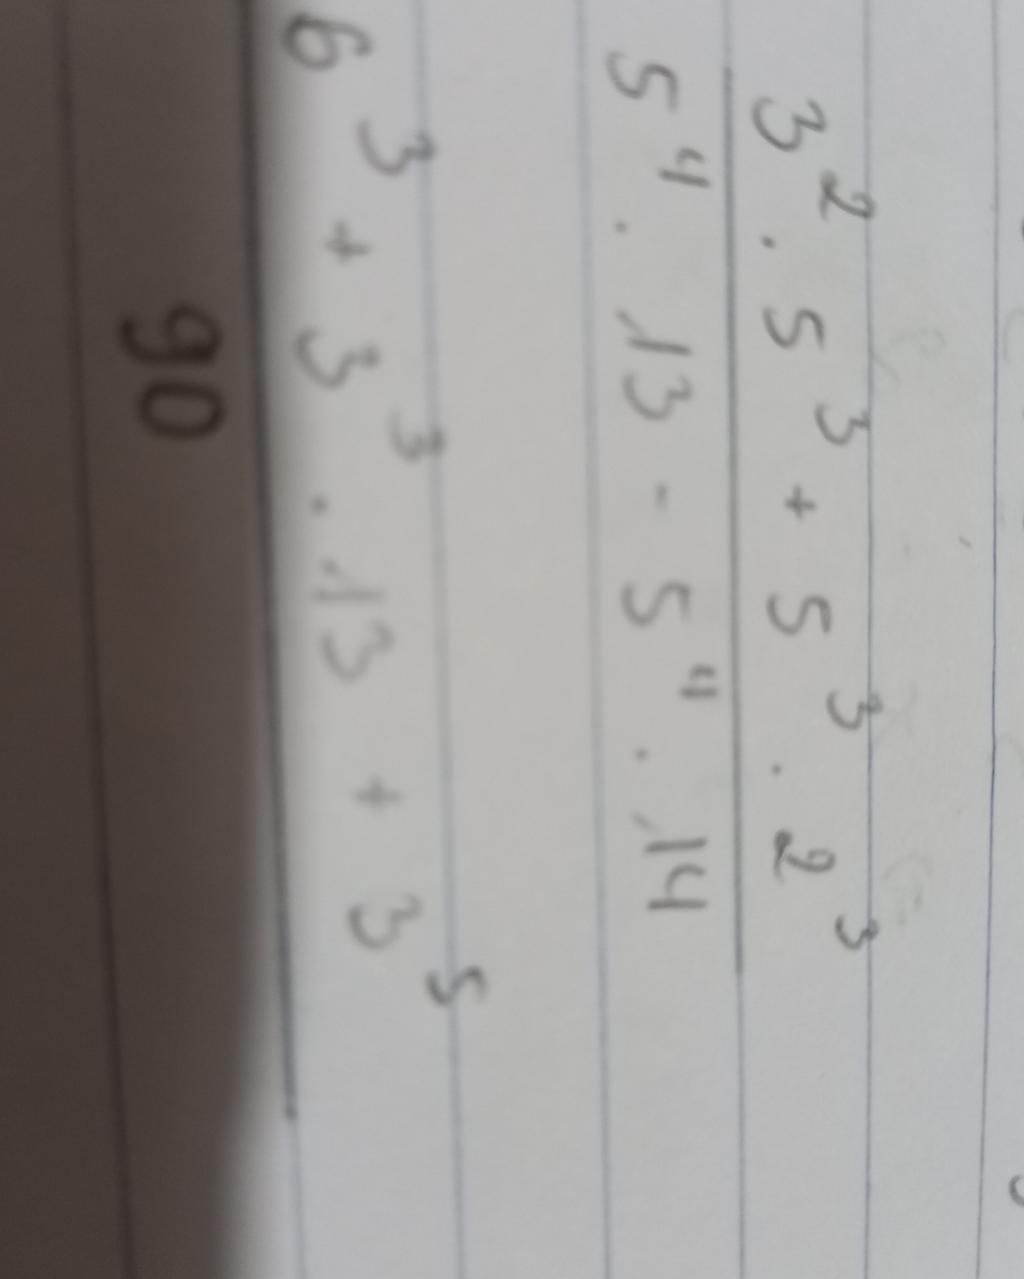 3² . 5³ + 5³ . 2³
5⁴ . 13 - 5⁴ . 14
6³ + 3³ . 13 + 3⁵
90